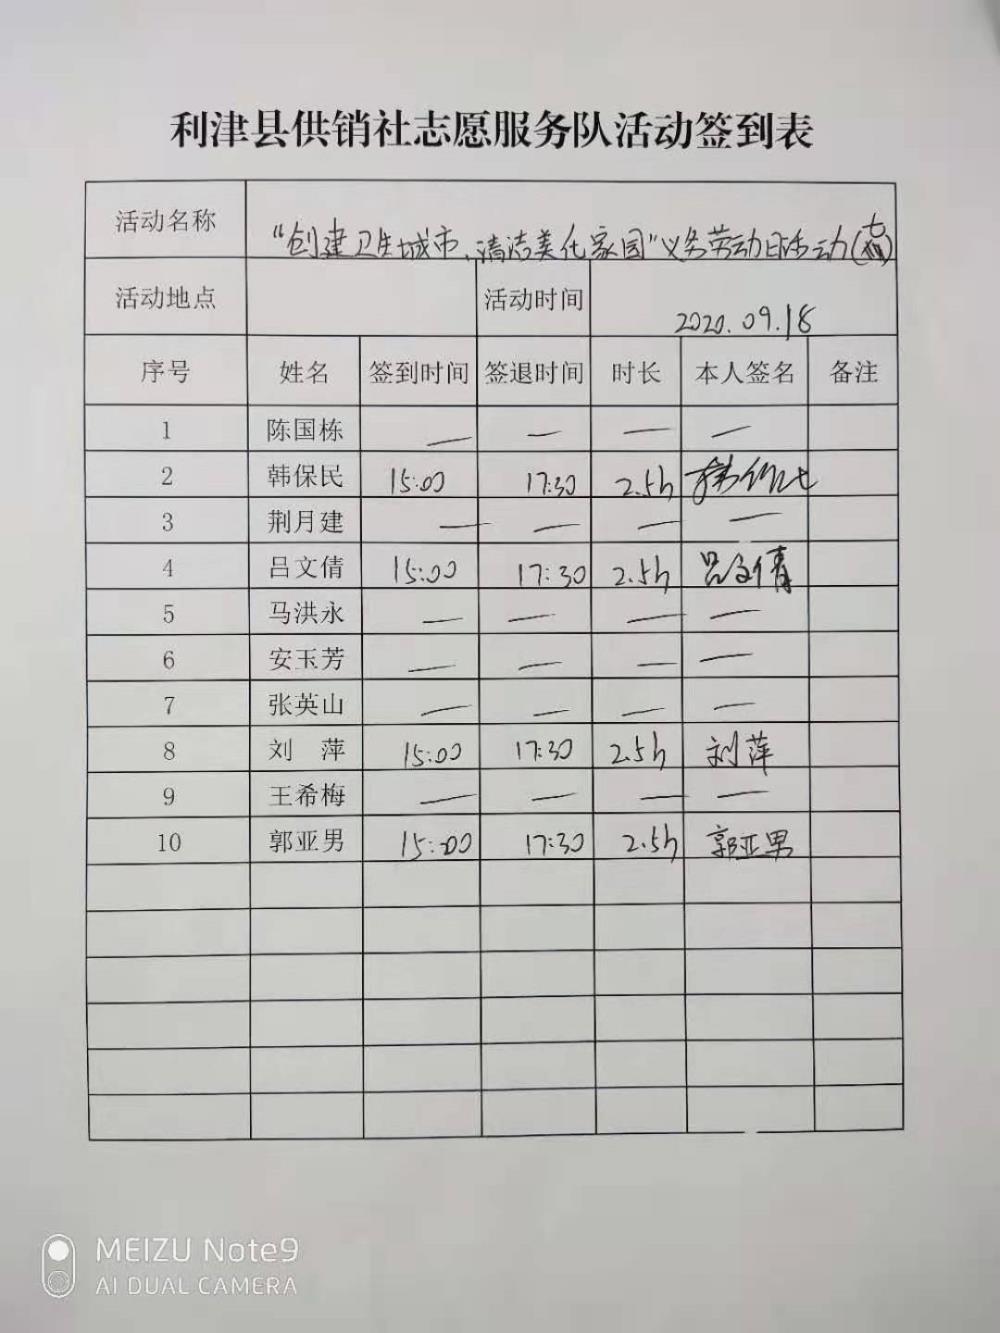 利津县供销社志愿服务队活动签到表
活动名称 “创建卫生城市、清洁美化家园”义务劳动日活动(七
活动地点 活动时间 2020.09.18
序号 姓名 签到时间 签退时间 时长 本人签名 备注
1 陈国栋 — — — —
2 韩保民 15:00 17:30 2.5h
3 荆月建 — — — —
4 吕文倩 15:00 17:30 2.5h 吕文倩
5 马洪永 — — — —
6 安玉芳 — — — —
7 张英山 — — — —
8 刘 萍 15:00 17:30 2.5h 刘萍
9 王希梅 — — — —
10 郭亚男 15:00 17:30 2.5h 郭亚男
MEIZU Note9
AI DUAL CAMERA